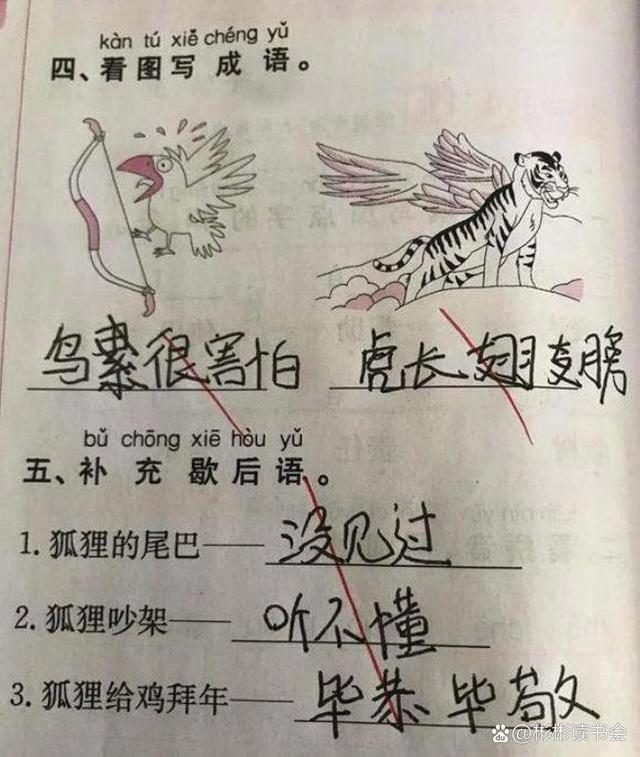 kàn tú xiě chéng yǔ
四、看图写成语。
鸟很害怕 虎长翅膀
bǔ chōng xiē hòu yǔ
五、补充歇后语。
1. 狐狸的尾巴——没见过
2. 狐狸吵架——听不懂
3. 狐狸给鸡拜年——毕恭毕敬
Bai du @彬彬读书会